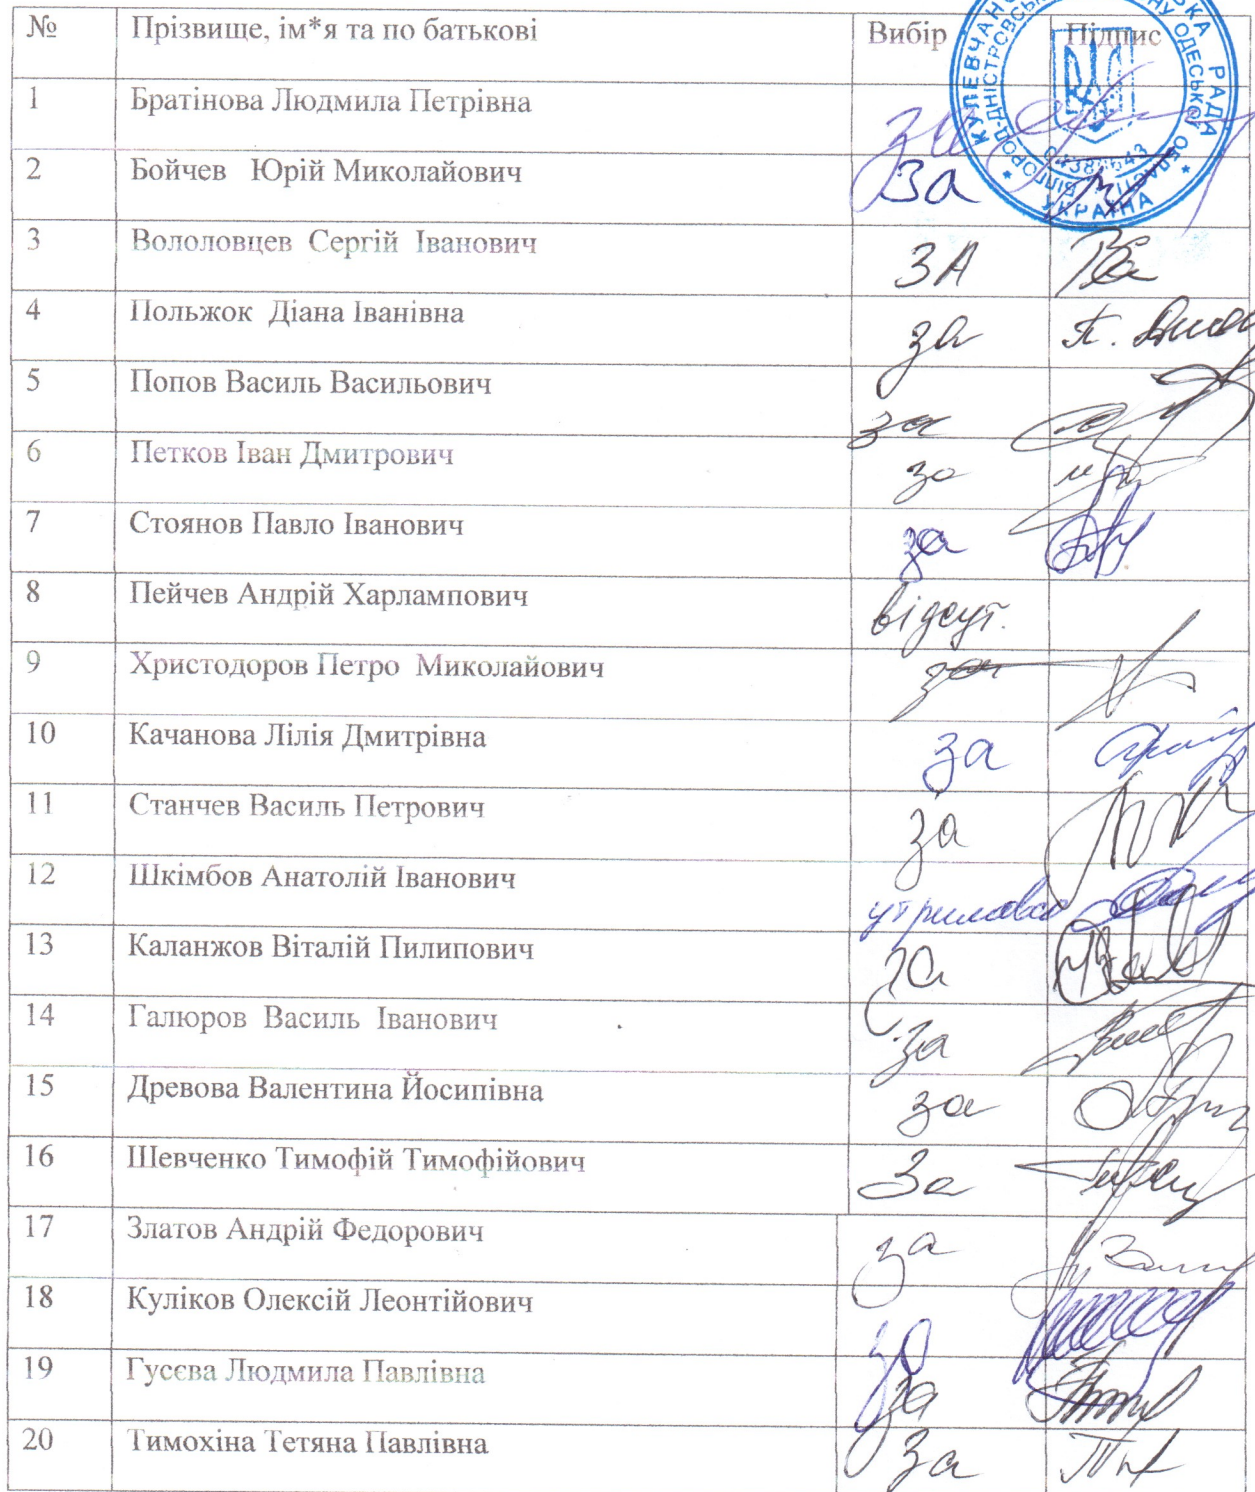 № Прізвище, ім*я та по батькові Вибір Підпис
1 Братінова Людмила Петрівна за
2 Бойчев Юрій Миколайович За
3 Вололовцев Сергій Іванович ЗА
4 Польжок Діана Іванівна за
5 Попов Василь Васильович за
6 Петков Іван Дмитрович за
7 Стоянов Павло Іванович за
8 Пейчев Андрій Харлампович відсут.
9 Христодоров Петро Миколайович за
10 Качанова Лілія Дмитрівна за
11 Станчев Василь Петрович за
12 Шкімбов Анатолій Іванович
13 Каланжов Віталій Пилипович за
14 Галюров Василь Іванович за
15 Древова Валентина Йосипівна за
16 Шевченко Тимофій Тимофійович За
17 Златов Андрій Федорович за
18 Куліков Олексій Леонтійович за
19 Гусєва Людмила Павлівна за
20 Тимохіна Тетяна Павлівна За
РАДА
УКРАЇНА